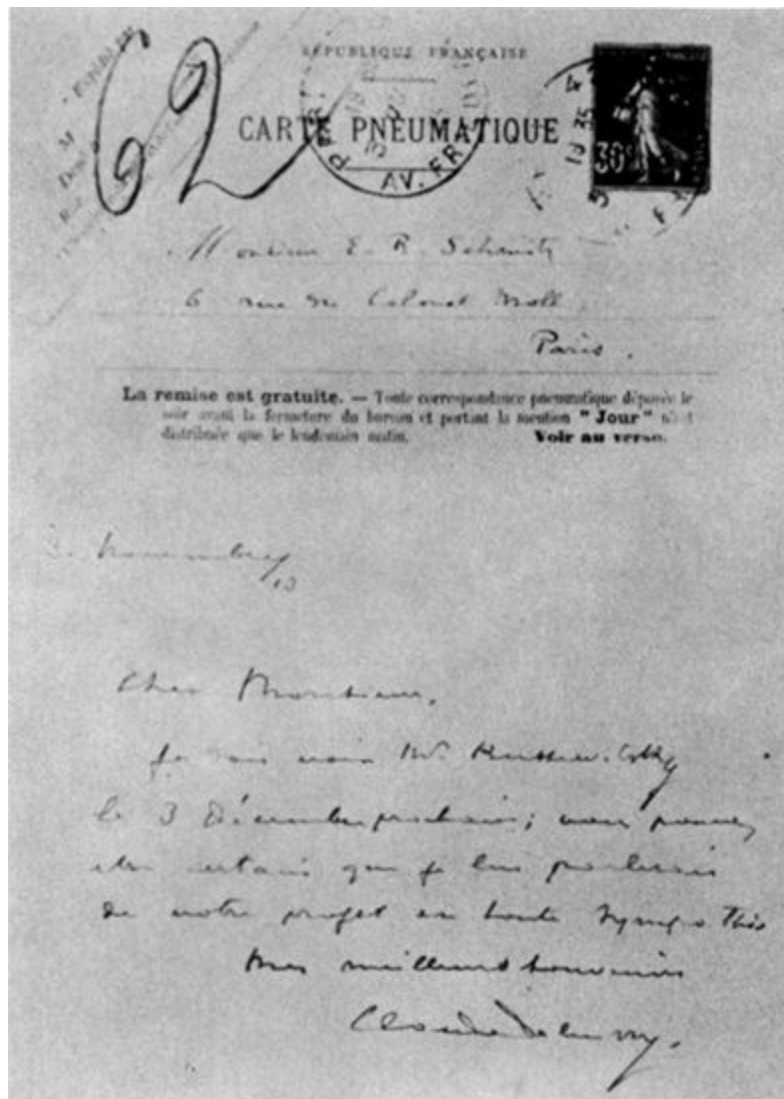 62
RÉPUBLIQUE FRANÇAISE
CARTE PNEUMATIQUE
30c
PARIS
AV. FR
Monsieur E. R. Schmitz
6 rue du Colonel Moll
Paris.
La remise est gratuite. — Toute correspondance pneumatique déposée le
soir avant la fermeture du bureau et portant la mention "Jour" n'est
distribuée que le lendemain matin. Voir au verso.
Novembre
13
Cher Monsieur,
Je vais voir Mr.
le 3 Décembre prochain; vous pouvez
être certain que je lui parlerais
de votre projet en toute sympathie
Mes meilleurs souvenirs
Claude Debussy.